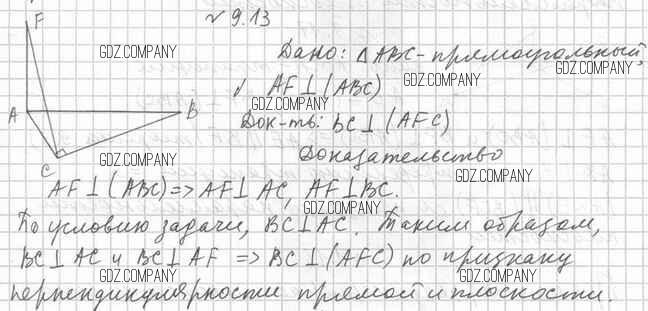 № 9.13
F
GDZ.COMPANY
Дано: △ABC - прямоугольный,
GDZ.COMPANY
GDZ.COMPANY
AF⊥(ABC)
GDZ.COMPANY
A
B
Док-ть: BC⊥(AFC)
GDZ.COMPANY
C
Доказательство
GDZ.COMPANY
AF⊥(ABC)=> AF⊥AC, AF⊥BC.
GDZ.COMPANY
По условию задачи, BC⊥AC. Таким образом,
BC⊥AC и BC⊥AF => BC⊥(AFC) по признаку
GDZ.COMPANY
GDZ.COMPANY
перпендикулярности прямой и плоскости.